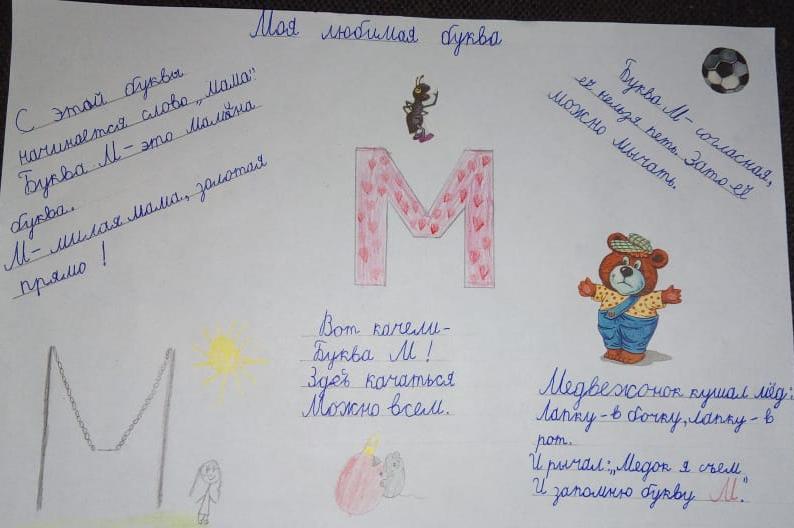 Моя любимая буква
С этой буквы
начинается слово „мама".
Буква М - это мамина
буква.
М - милая мама, золотая
прямо!
Буква М - согласная,
её нельзя петь. Зато её
можно мычать.
М
Вот качели-
Буква М!
Здеь качаться
Можно всем.
Медвежонок кушал мёд:
Лапку - в бочку, лапку - в
рот.
И рычал: „Медок я съем
И запомню букву М".